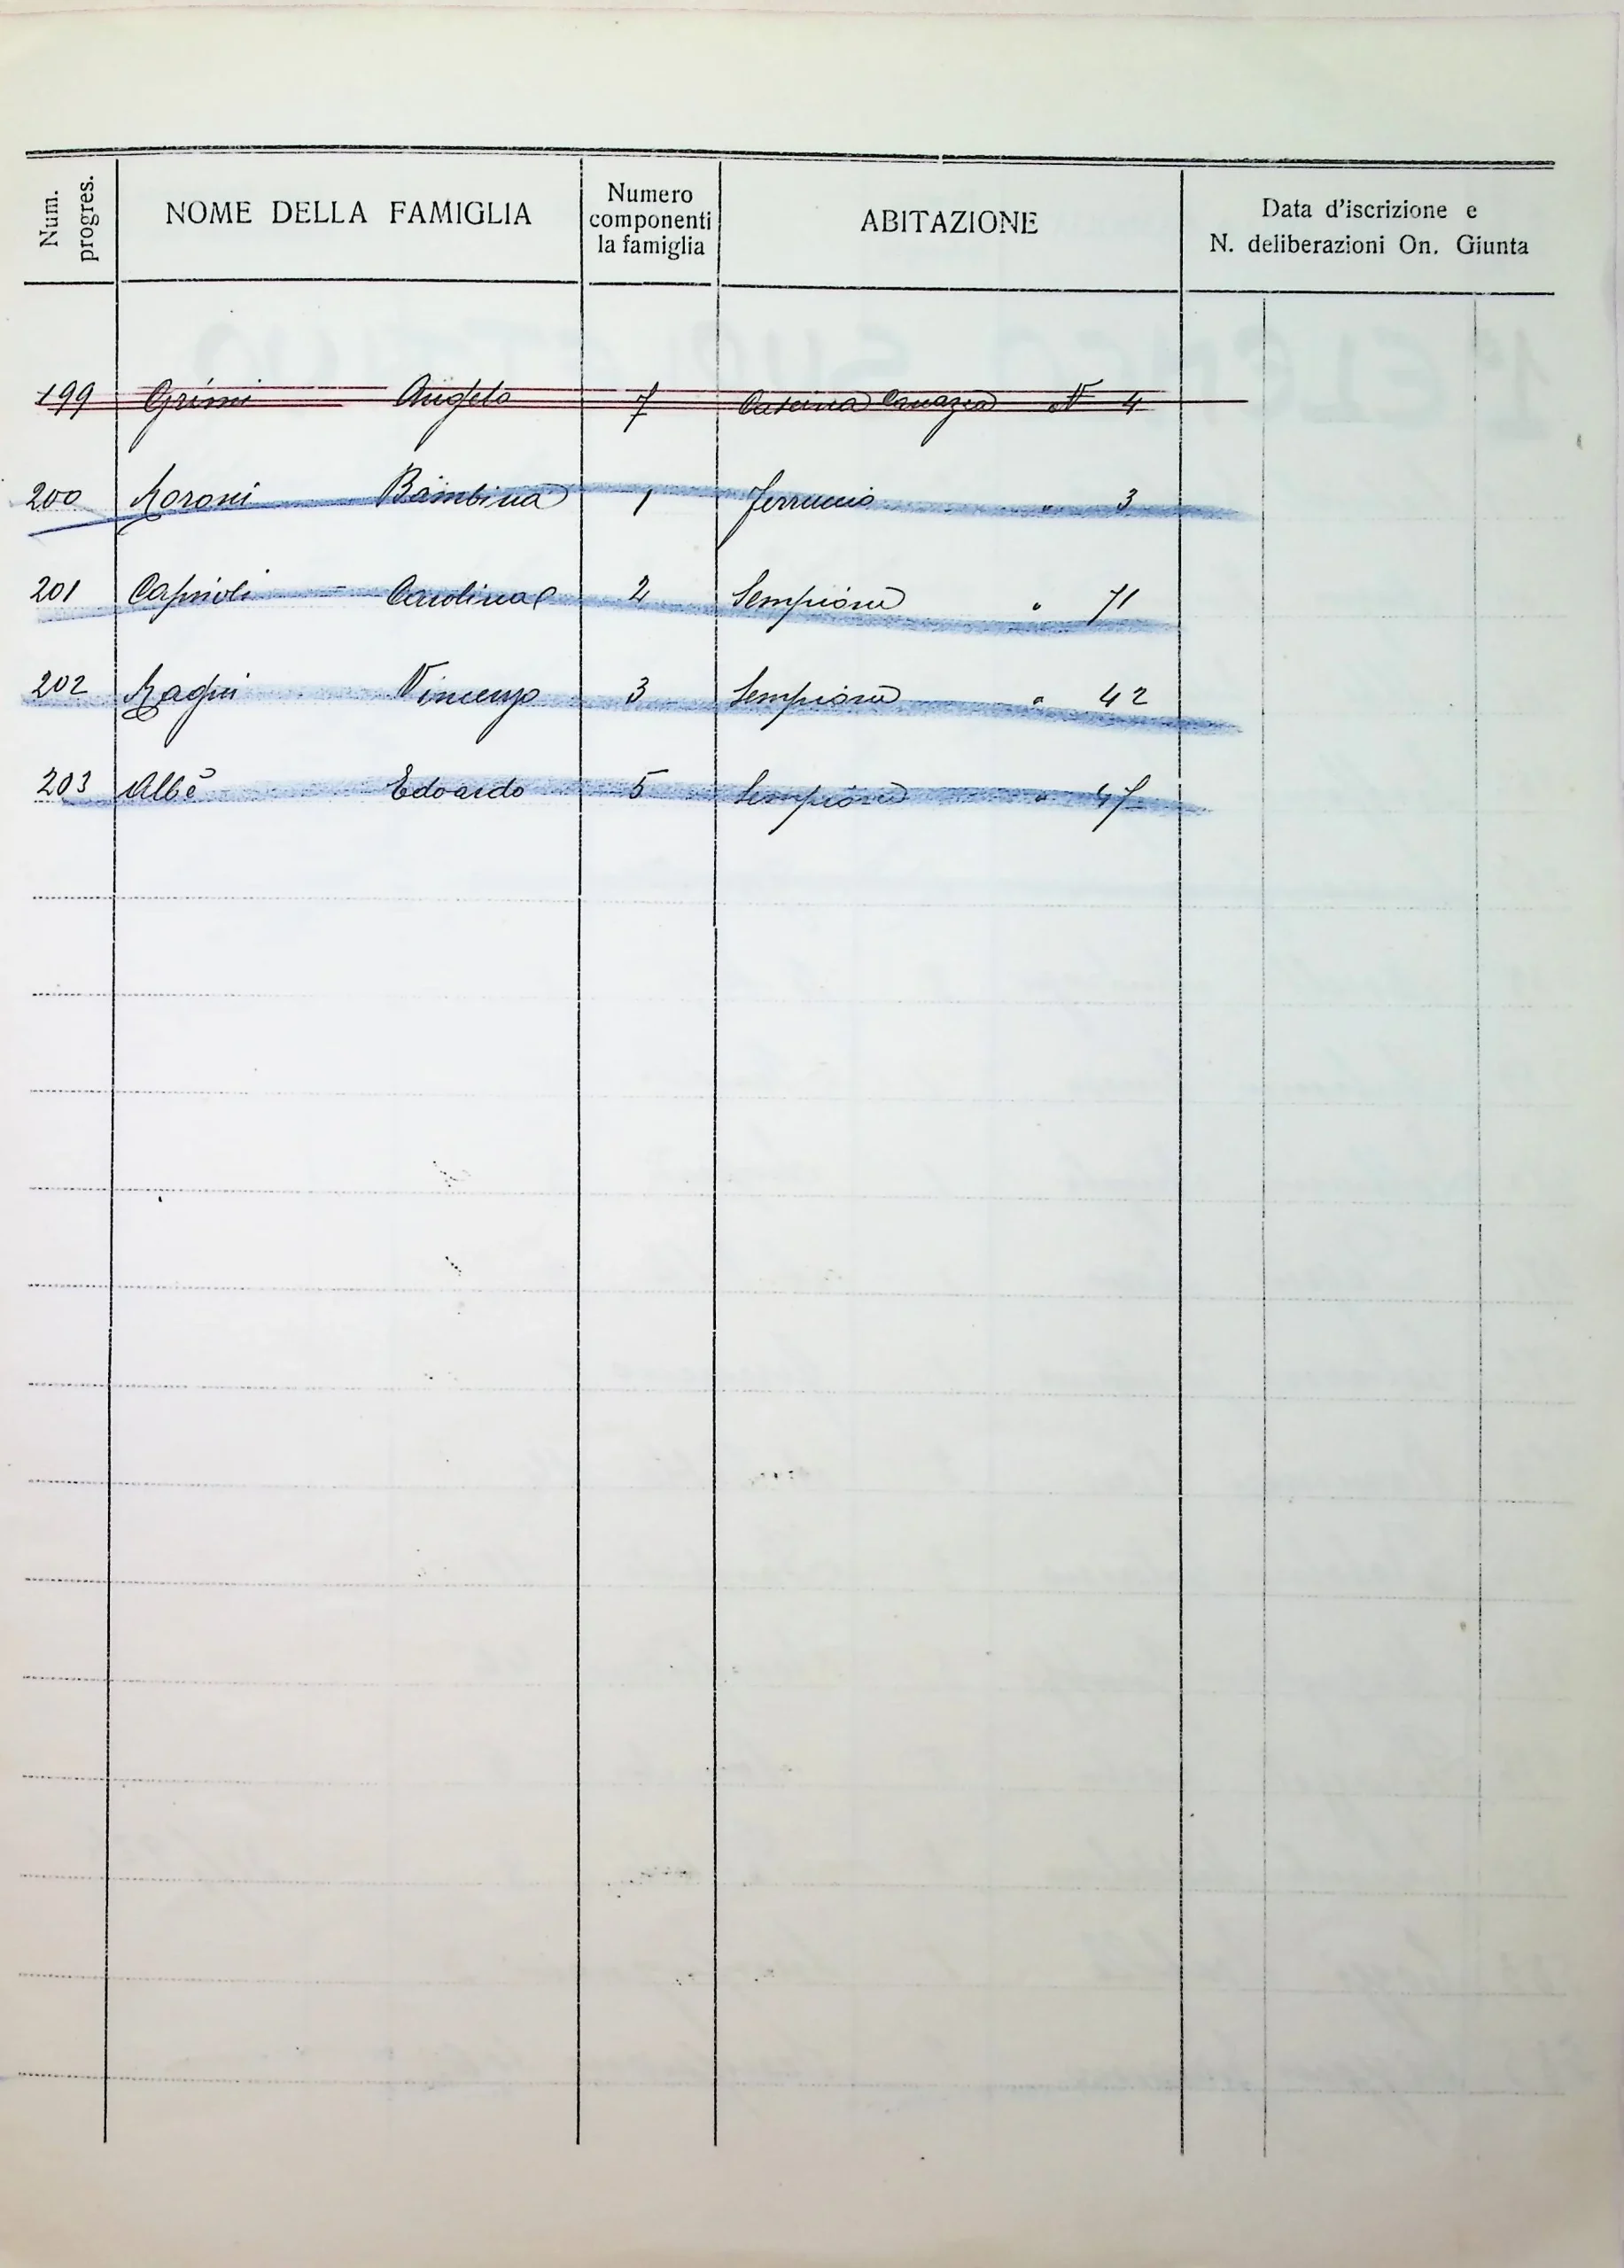 Num. progres.
NOME DELLA FAMIGLIA
Numero componenti la famiglia
ABITAZIONE
Data d'iscrizione e N. deliberazioni On. Giunta
199 Grimi Angelo 7 Cascina Canazza N 4
200 Moroni Bambina 1 Ferruccio " 3
201 Caprioli Carolina 2 Sempione " 71
202 Magni Vincenzo 3 Sempione " 42
203 Albè Edoardo 5 Sempione " 47